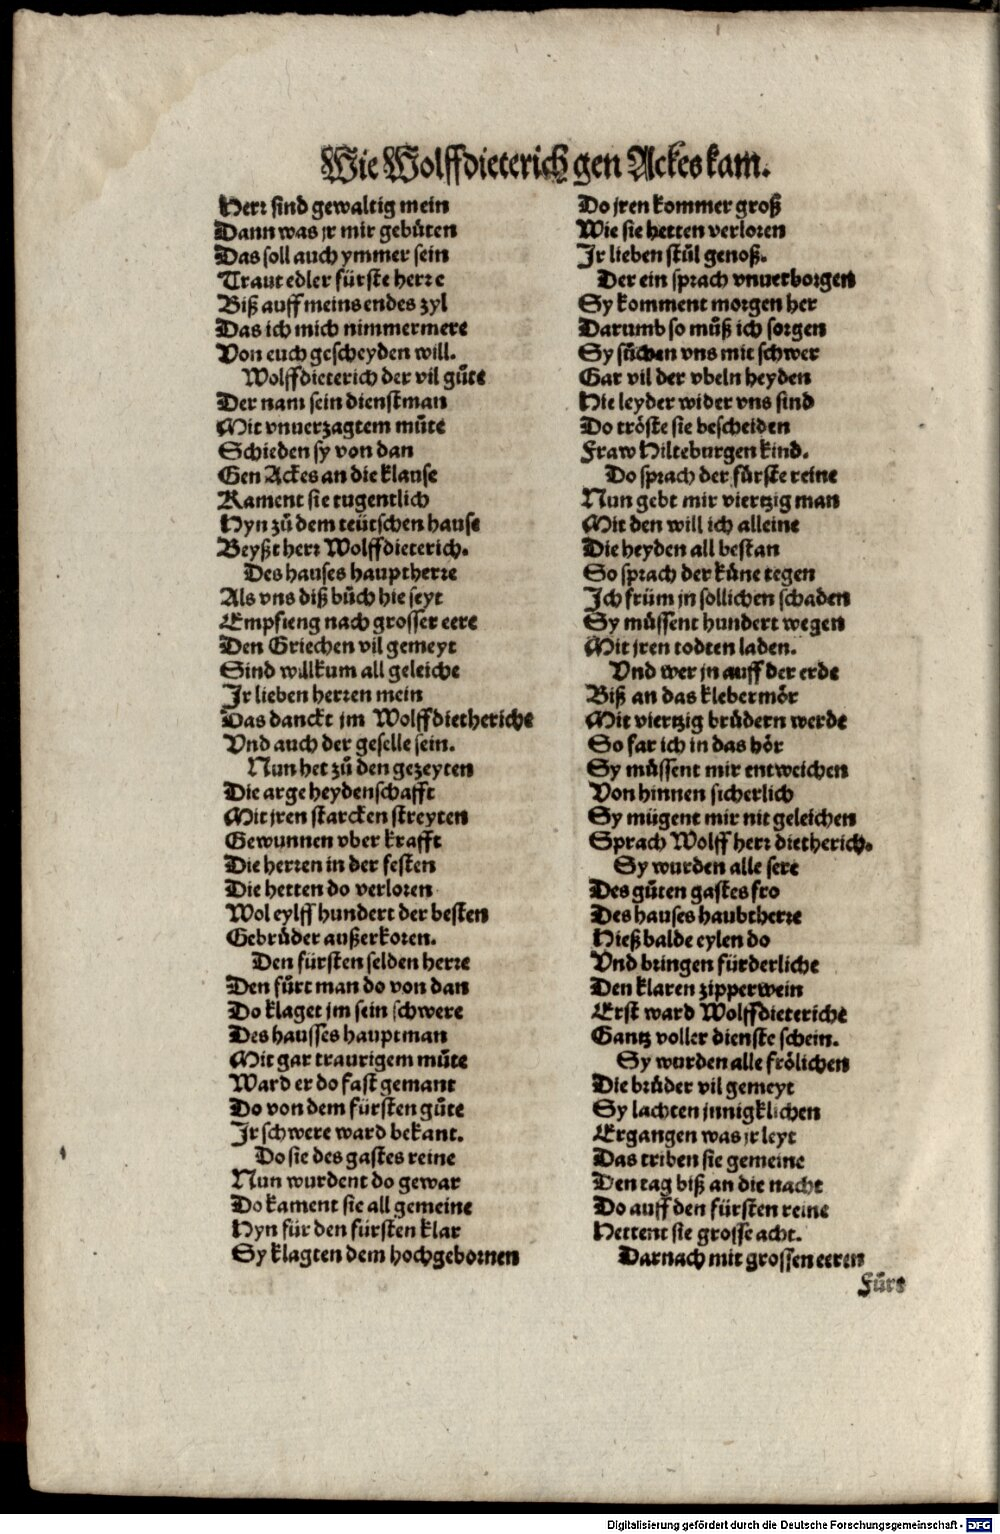 Wie Wolffdieterich gen Ackes kam.
Herr sind gewaltig mein
Dann was jr mir gebüten
Das soll auch ymmer sein
Traut edler fürste herre
Biß auff meins endes zyl
Das ich mich nimmermere
Von euch gescheyden will.
Wolffdieterich der vil gůte
Der nam sein dienstman
Mit vnuerzagtem můte
Schieden sy von dan
Gen Ackes an die klause
Kament sie tugentlich
Hyn zů dem teütschen hause
Beyßt herr Wolffdieterich.
Des hauses hauptherre
Als vns diß bůch hie seyt
Empfieng nach grosser eere
Den Griechen vil gemeyt
Sind willkum all geleiche
Jr lieben herren mein
Das danckt jm Wolffdietheriche
Vnd auch der geselle sein.
Nun het zů den gezeyten
Die arge heydenschafft
Mit jren starcken streyten
Gewunnen vber krafft
Die herren in der festen
Die hetten do verloren
Wol eylff hundert der besten
Gebrüder außerkoren.
Den fürsten selden herre
Den fůrt man do von dan
Do klaget jm sein schwere
Des hausses hauptman
Mit gar traurigem můte
Ward er do fast gemant
Do von dem fürsten gůte
Jr schwere ward bekant.
Do sie des gastes reine
Nun wurdent do gewar
Do kament sie all gemeine
Hyn für den fürsten klar
Sy klagten dem hochgebornen
Do jren kommer groß
Wie sie hetten verloren
Jr lieben stůl genoß.
Der ein sprach vnuerborgen
Sy komment morgen her
Darumb so můß ich sorgen
Sy sůchen vns mit schwer
Gar vil der vbeln heyden
Hie leyder wider vns sind
Do tröste sie bescheiden
Fraw Hilteburgen kind.
Do sprach der fürste reine
Nun gebt mir viertzig man
Mit den will ich alleine
Die heyden all bestan
So sprach der küne tegen
Ich früm jn sollichen schaden
Sy müssent hundert wegen
Mit jren todten laden.
Vnd wer jn auff der erde
Biß an das klebermör
Mit viertzig brüdern werde
So far ich in das hör
Sy müssent mir entweichen
Von hinnen sicherlich
Sy mügent mir nit geleichen
Sprach Wolff herr dietherich.
Sy wurden alle sere
Des gůten gastes fro
Des hauses haubtherre
Hieß balde eylen do
Vnd bringen fürderliche
Den klaren zipperwein
Erst ward Wolffdieteriche
Gantz voller dienste schein.
Sy wurden alle frölichen
Die brüder vil gemeyt
Sy lachten jnnigklichen
Ergangen was jr leyt
Das triben sie gemeine
Den tag biß an die nacht
Do auff den fürsten reine
Hettent sie grosse acht.
Darnach mit grossen eeren
Fůrt
Digitalisierung gefördert durch die Deutsche Forschungsgemeinschaft - DFG